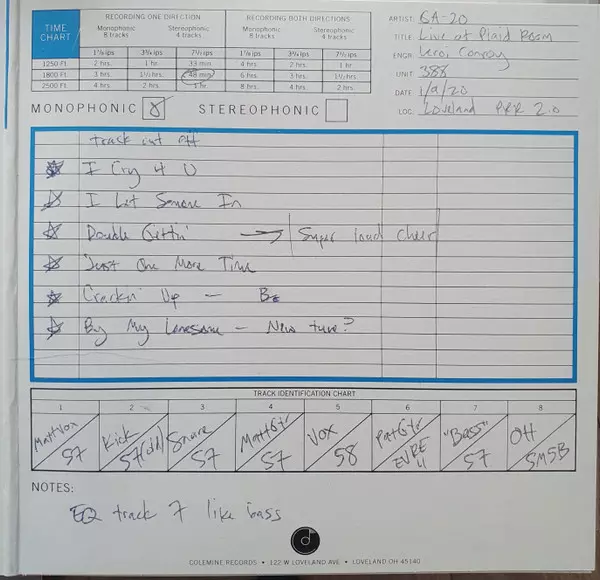 TIME CHART
RECORDING ONE DIRECTION
RECORDING BOTH DIRECTIONS
Monophonic 8 tracks
Stereophonic 4 tracks
Monophonic 8 tracks
Stereophonic 4 tracks
1⅞ ips 3¾ ips 7½ ips 1⅞ ips 3¾ ips 7½ ips
1250 Ft. 2 hrs. 1 hr. 33 min. 4 hrs. 2 hrs. 1 hr.
1800 Ft. 3 hrs. 1½ hrs. 48 min. 6 hrs. 3 hrs. 1½ hrs.
2500 Ft. 4 hrs. 2 hrs. 1 hr. 8 hrs. 4 hrs. 2 hrs.
ARTIST: GA-20
TITLE: Live at Plaid Room
ENGR. Leroi Conroy
UNIT 388
DATE 1/9/20
LOC. Loveland PRR 2.0
MONOPHONIC X STEREOPHONIC
track out
I Cry 4 U
I Let Someone In
Double Gettin' → Super loud cheer
Just One More Time
Crackin' Up –
By My Lonesome – New tune?
TRACK IDENTIFICATION CHART
1 2 3 4 5 6 7 8
Matt Vox 57
Kick 57 (old)
Snare 57
Matt Gtr 57
Vox 58
Pat Gtr EVRE
"Bass" 57
OH SM5B
NOTES:
EQ track 7 like bass
COLEMINE RECORDS • 122 W LOVELAND AVE • LOVELAND OH 45140